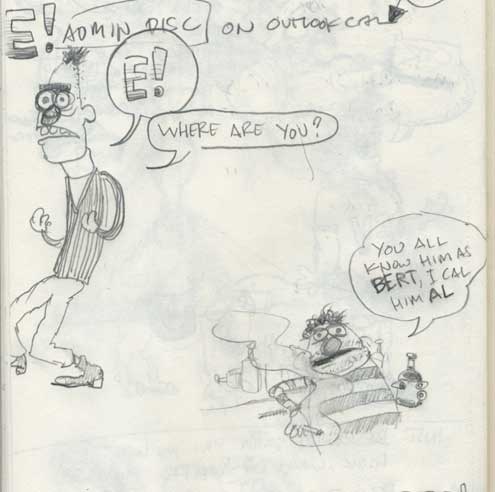 E! ADMIN DISC ON OUTLOOK CAL
E!
WHERE ARE YOU?
YOU ALL
KNOW HIM AS
BERT, I CAL
HIM AL